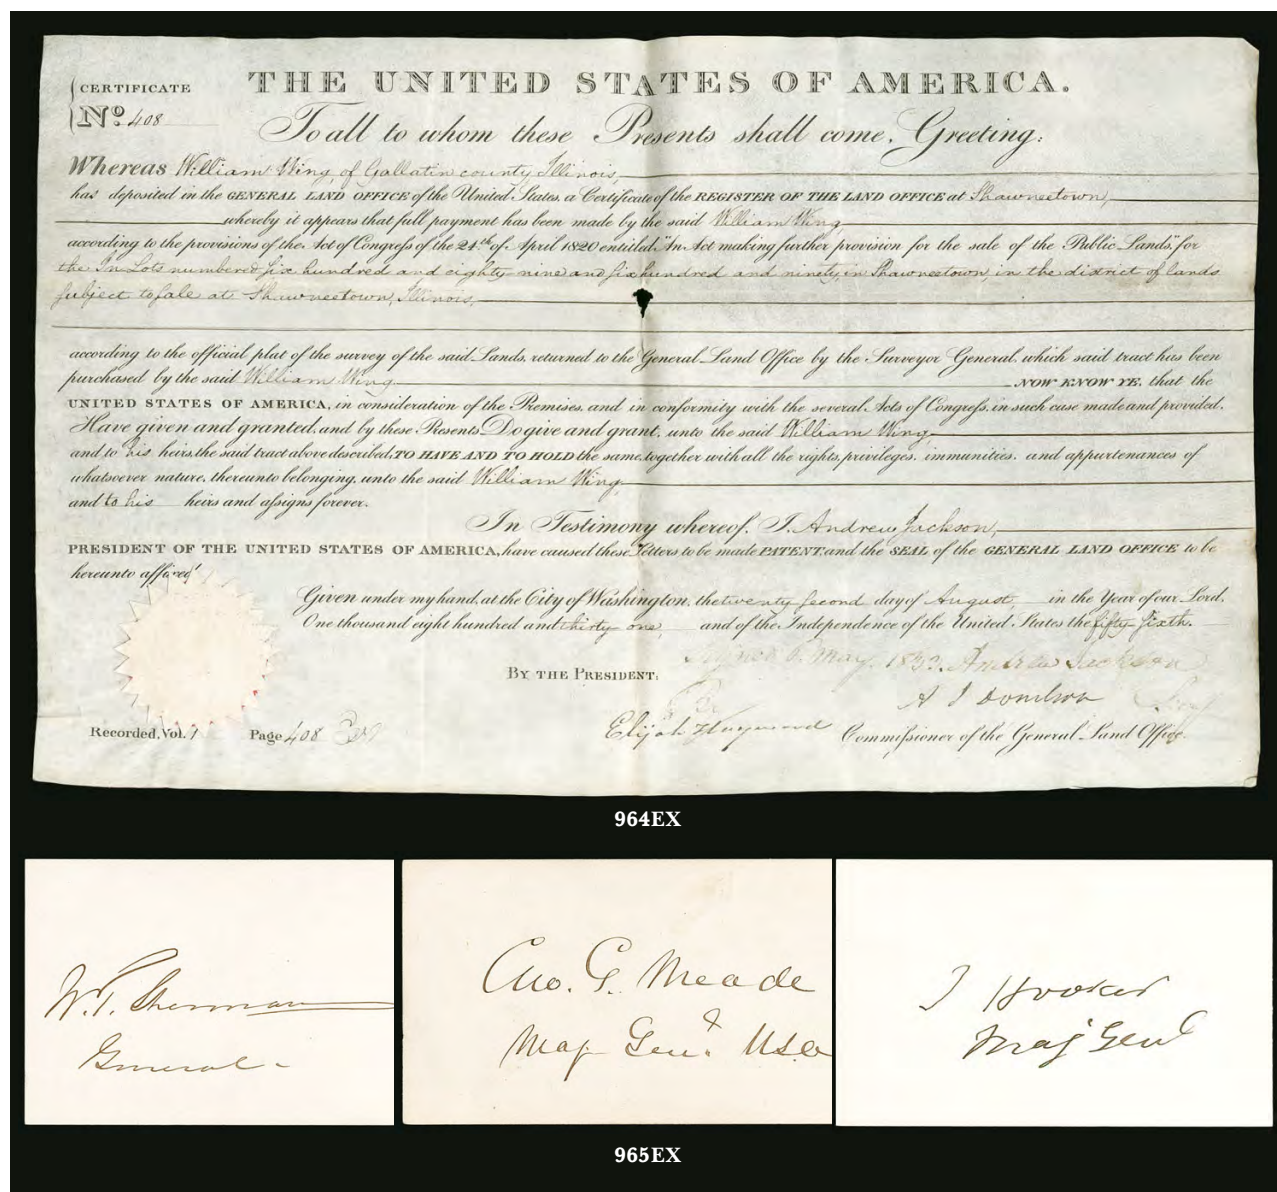 THE UNITED STATES OF AMERICA.
CERTIFICATE
No. 408
To all to whom these Presents shall come, Greeting:
Whereas William Wing, of Gallatin county Illinois,
has deposited in the GENERAL LAND OFFICE of the United States, a Certificate of the REGISTER OF THE LAND OFFICE at Shawneetown,
whereby it appears that full payment has been made by the said William Wing
according to the provisions of the Act of Congress of the 24th of April 1820 entitled "An Act making further provision for the sale of the Public Lands," for
the In Lots numbered six hundred and eighty nine and six hundred and ninety, in Shawneetown, in the district of lands
subject to sale at Shawneetown, Illinois,
according to the official plat of the survey of the said Lands, returned to the General Land Office by the Surveyor General, which said tract has been
purchased by the said William Wing NOW KNOW YE, that the
UNITED STATES OF AMERICA, in consideration of the Premises, and in conformity with the several Acts of Congress, in such case made and provided,
Have given and granted, and by these Presents Do give and grant, unto the said William Wing,
and to his heirs, the said tract above described, TO HAVE AND TO HOLD the same, together with all the rights, privileges, immunities, and appurtenances of
whatsoever nature, thereunto belonging, unto the said William Wing
and to his heirs and assigns forever.
In Testimony whereof, I, Andrew Jackson,
PRESIDENT OF THE UNITED STATES OF AMERICA, have caused these Letters to be made PATENT, and the SEAL of the GENERAL LAND OFFICE to be
hereunto affixed
Given under my hand, at the City of Washington, the twenty second day of August, in the Year of our Lord,
One thousand eight hundred and thirty one, and of the Independence of the United States the fifty sixth.
Signed 6. May, 1833. Andrew Jackson
BY THE PRESIDENT:
A J Donelson Secy
Elijah Hayward Commissioner of the General Land Office.
Recorded, Vol. 1 Page 408
964EX
W. T. Sherman
General
Geo. G. Meade
Maj Genl. USA
J Hooker
Maj Genl
965EX